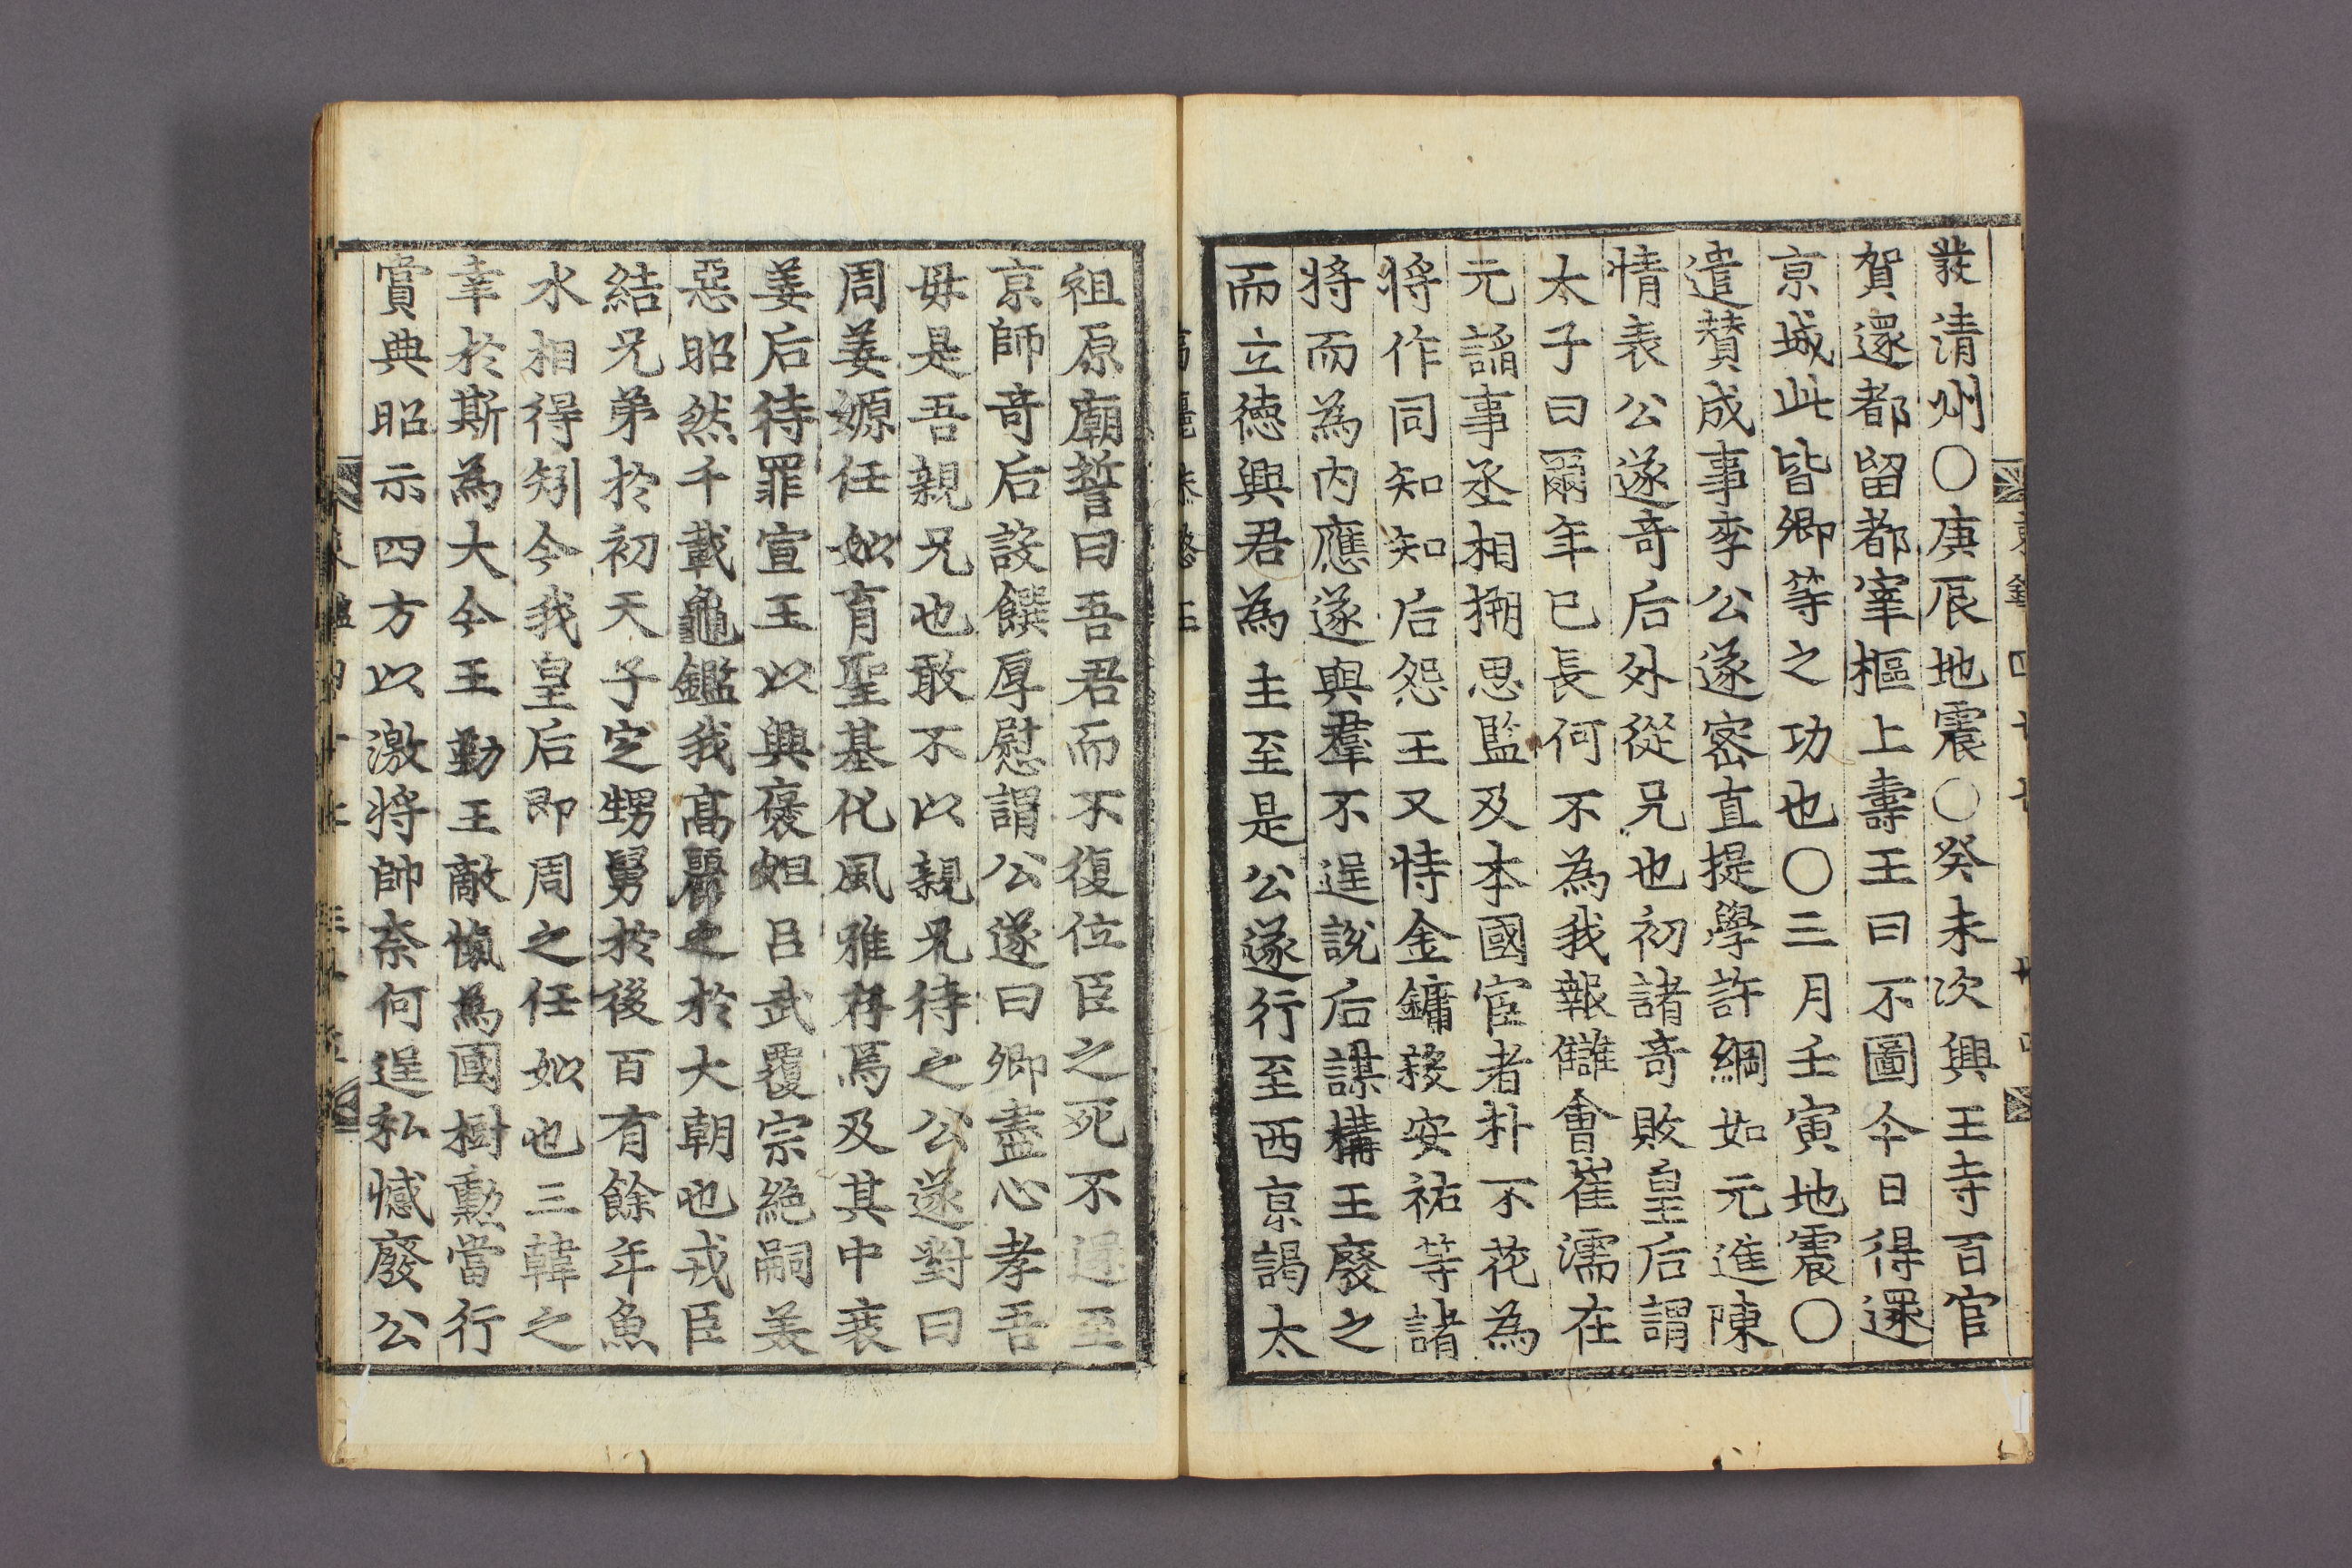 發清州○庚辰地震○癸未次興王寺百官
賀還都留都宰樞上壽王曰不圖今日得還
京城此皆卿等之功也○三月壬寅地震○
遣贊成事李公遂密直提學許綱如元進陳
情表公遂奇后外從兄也初諸奇敗皇后謂
太子曰爾年已長何不為我報讎會崔濡在
元謟事丞相搠思監及本國宦者朴不花為
將作同知知后怨王又恃金鏞蔡安祐等諸
將而為內應遂與羣不逞說后謀構王廢之
而立德興君為主至是公遂行至西京謁太
祖原廟誓曰吾君而不復位臣之死不還至
京師奇后設饌厚慰謂公遂曰卿盡心孝吾
毋是吾親兄也敢不以親兄待之公遂對曰
周姜嫄任姒育聖基化風雅存焉及其中衰
姜后待罪宣王以興褒妲呂武覆宗絶嗣美
惡昭然千載龜鑑我高麗之於大朝也戎臣
結兄弟於初天子定甥舅於後百有餘年魚
水相得矧今我皇后即周之任姒也三韓之
幸於斯為大今王勤王敵愾為國樹勳當行
賞典昭示四方以激將帥柰何逞私憾廢公